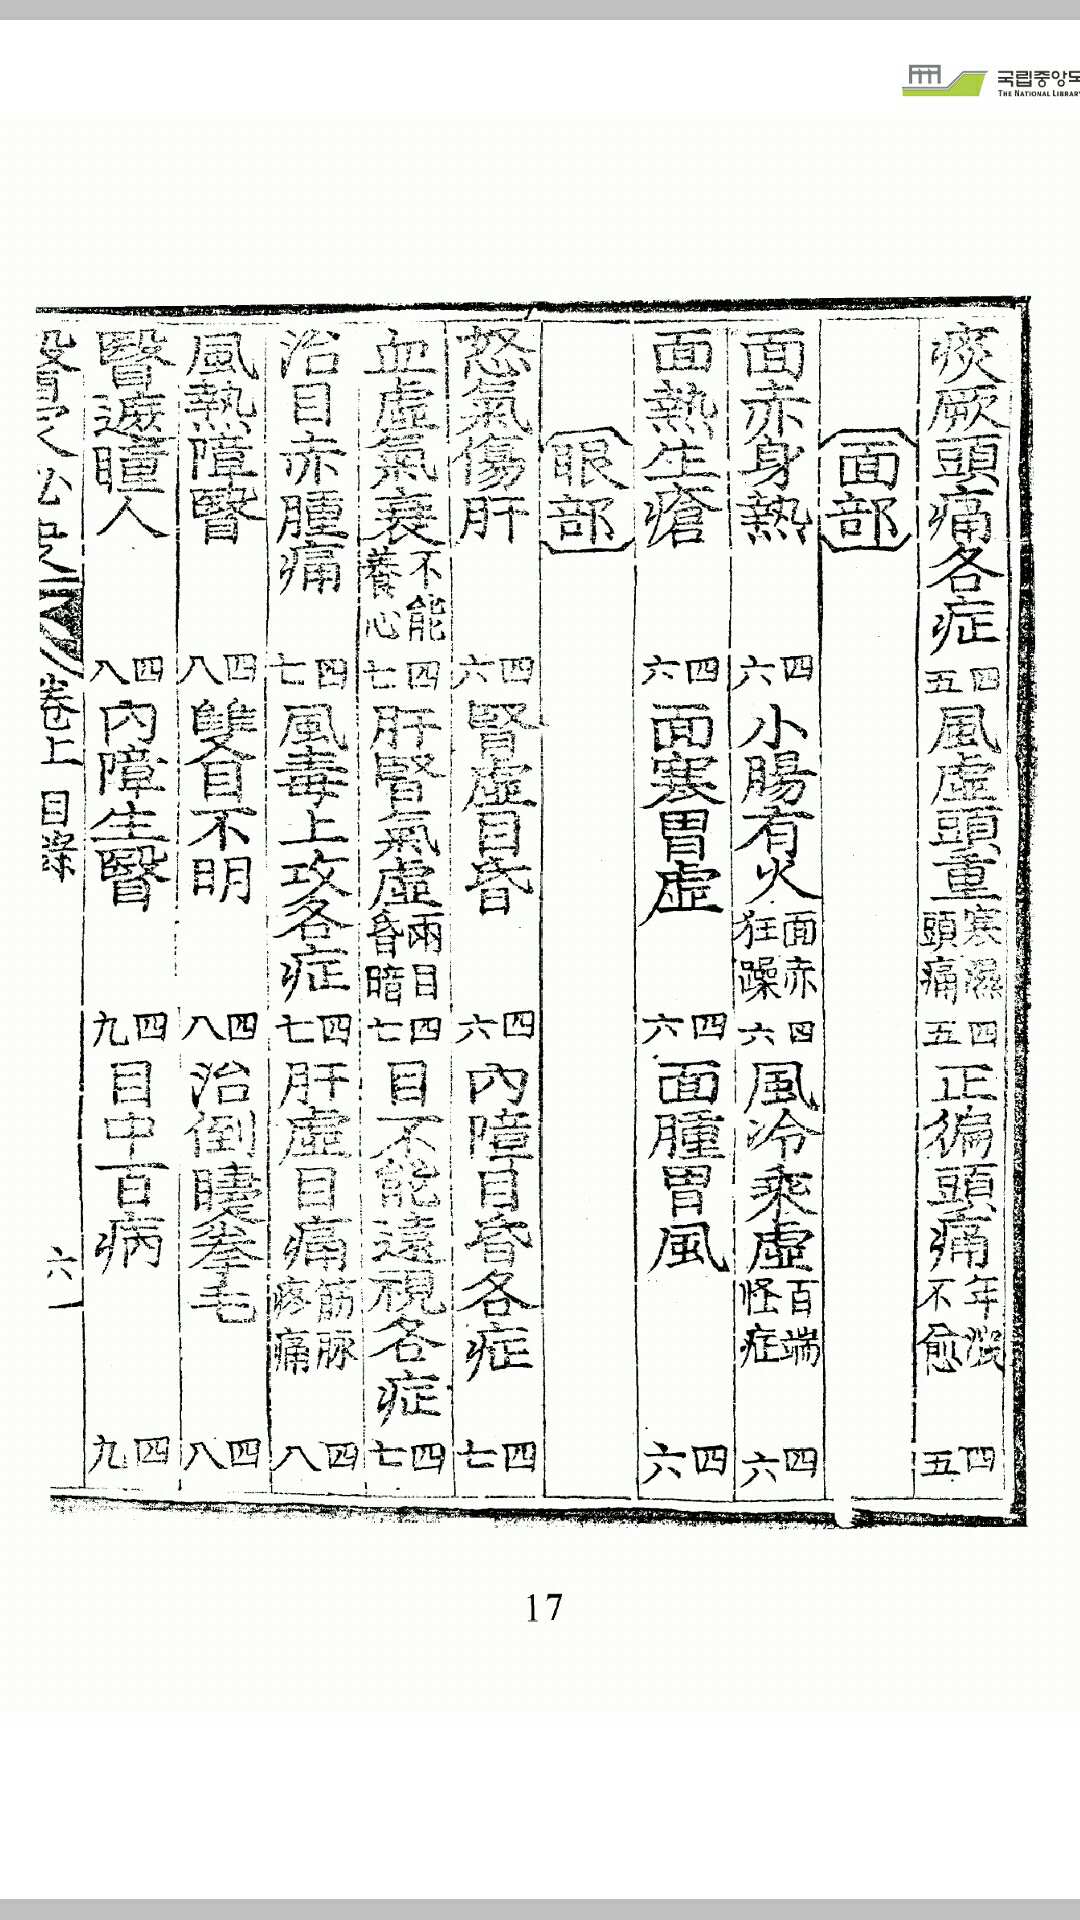 국립중앙도
THE NATIONAL LIBRARY
痰厥頭痛各症 四五 風虛頭重 寒濕頭痛 四五 正偏頭痛 年深不愈 四五
面部
面赤身熱 四六 小腸有火 面赤狂躁 四六 風冷乘虛 百端怪症 四六
面熱生瘡 四六 面寒胃虛 四六 面腫胃風 四六
眼部
怒氣傷肝 四六 腎虛目昏 四六 內障目昏各症 四七
血虛氣衰 不能養心 四七 肝腎氣虛 兩目昏暗 四七 目不能遠視各症 四七
治目赤腫痛 四七 風毒上攻各症 四七 肝虛目痛 筋脉疼痛 四八
風熱障瞖 四八 雙目不明 四八 治倒睫拳毛 四八
瞖遮瞳人 四八 內障生瞖 四九 目中百病 四九
卷上 目錄 六
17